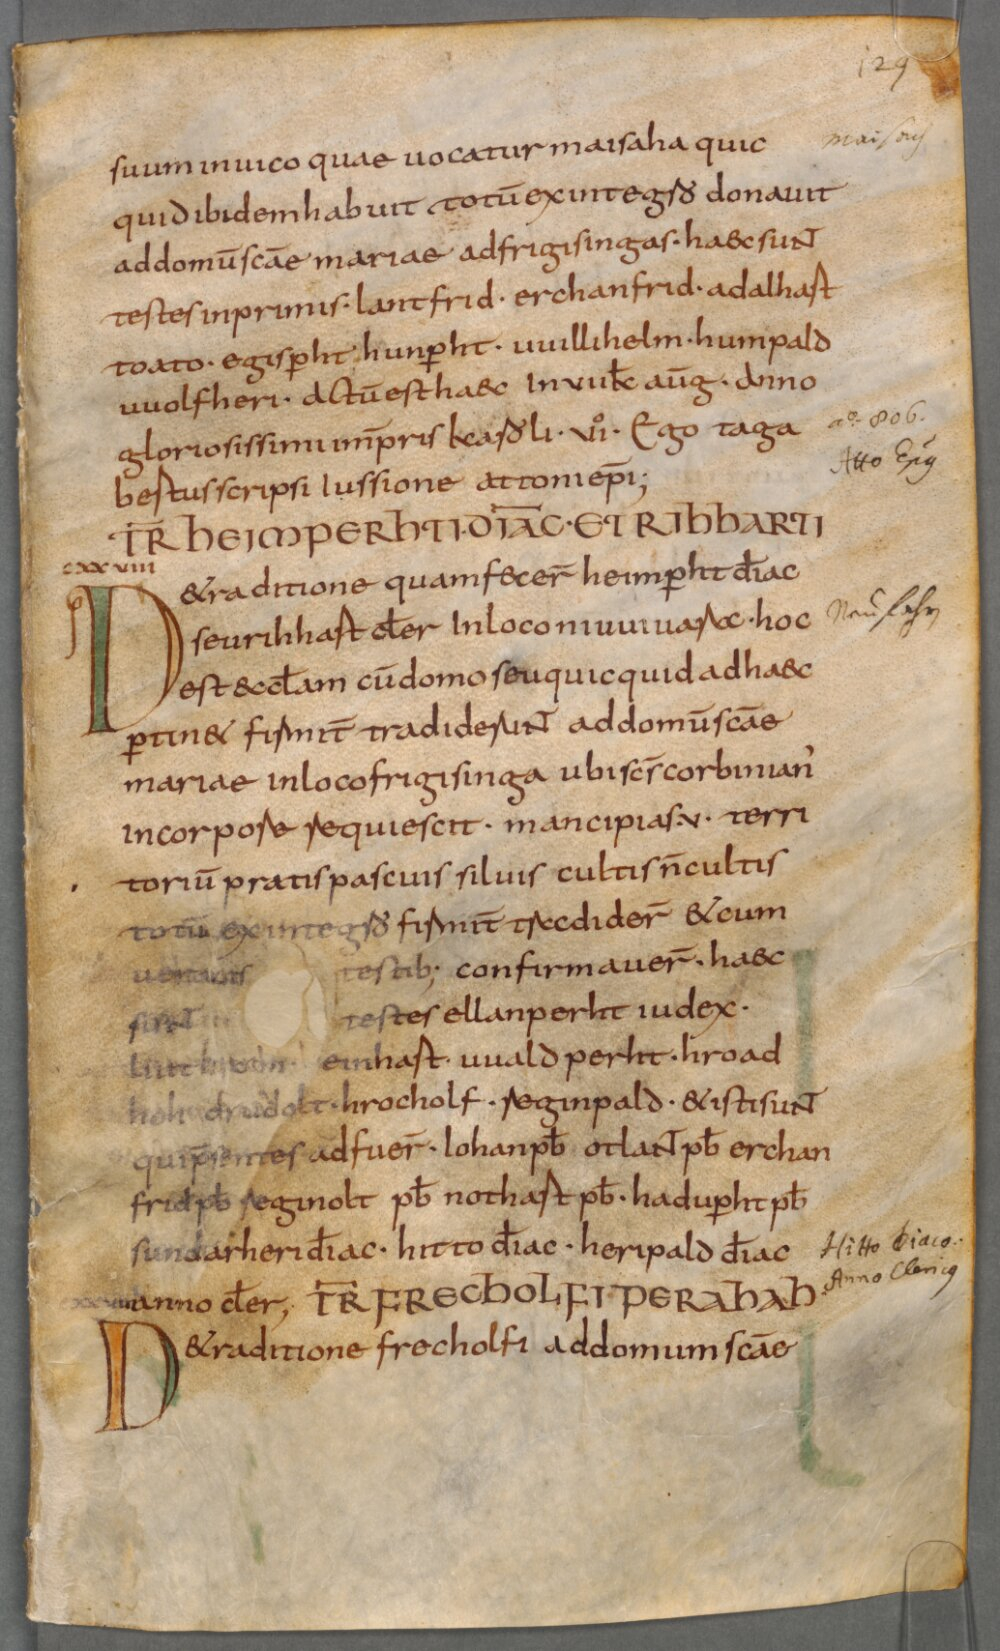 129
suum in uico quae uocatur maisaha quic
maisach
quid ibidem habuit totū ex integro donauit
ad domū scāe mariae ad frigisingas · haec sunt
testes inprimis · lantfrid · erchanfrid · adalhart
toato · egisp̄ht hunp̄ht · uuillihelm · humpald
uuolfheri · actū est haec In
aūg · Anno
gloriosissimi imp̄ris karoli · vi · Ego taga
aº. 806.
bertus scripsi Iussione attoni ep̄i;
Atto Ep̄9
TR̄ HEIMPERHTI · DIAC̄ · ET RIHHARTI
cxxviii
De traditione quam fecer̄ heimp̄ht điac
seu rihhart cl̄er In loco niuuiuare · hoc
Neufahrn
est eccl̄am cū domo seu quicquid ad haec
p̄tinet firmit̄ tradiderunt ad domū scāe
mariae in loco frigisinga ubi scs̄ corbinian'
in corpore requiescit · mancipias · v · terri
toriū pratis pascuis siluis cultis n̄ cultis
totū ex integro firmit̄ trecdider̄ et cum
testib; confirmauer̄ · haec
sunt testes ellanperht iudex ·
einhart · uualdperht · hroad
holt drudolt · hrocholf · reginpald · et isti sunt
qui p̄sentes adfuer̄ · lohan pb̄ otlant pb̄ erchan
frid pb̄ reginolt pb̄ nothart pb̄ · hadup̄ht pb̄
sundarheri điac · hitto điac · heripald điac
Hitto diaco.
anno cl̄er; TR̄ FRECHOLFI PERAHAH
Anno Cleric9
De traditione frecholfi ad domum scāe